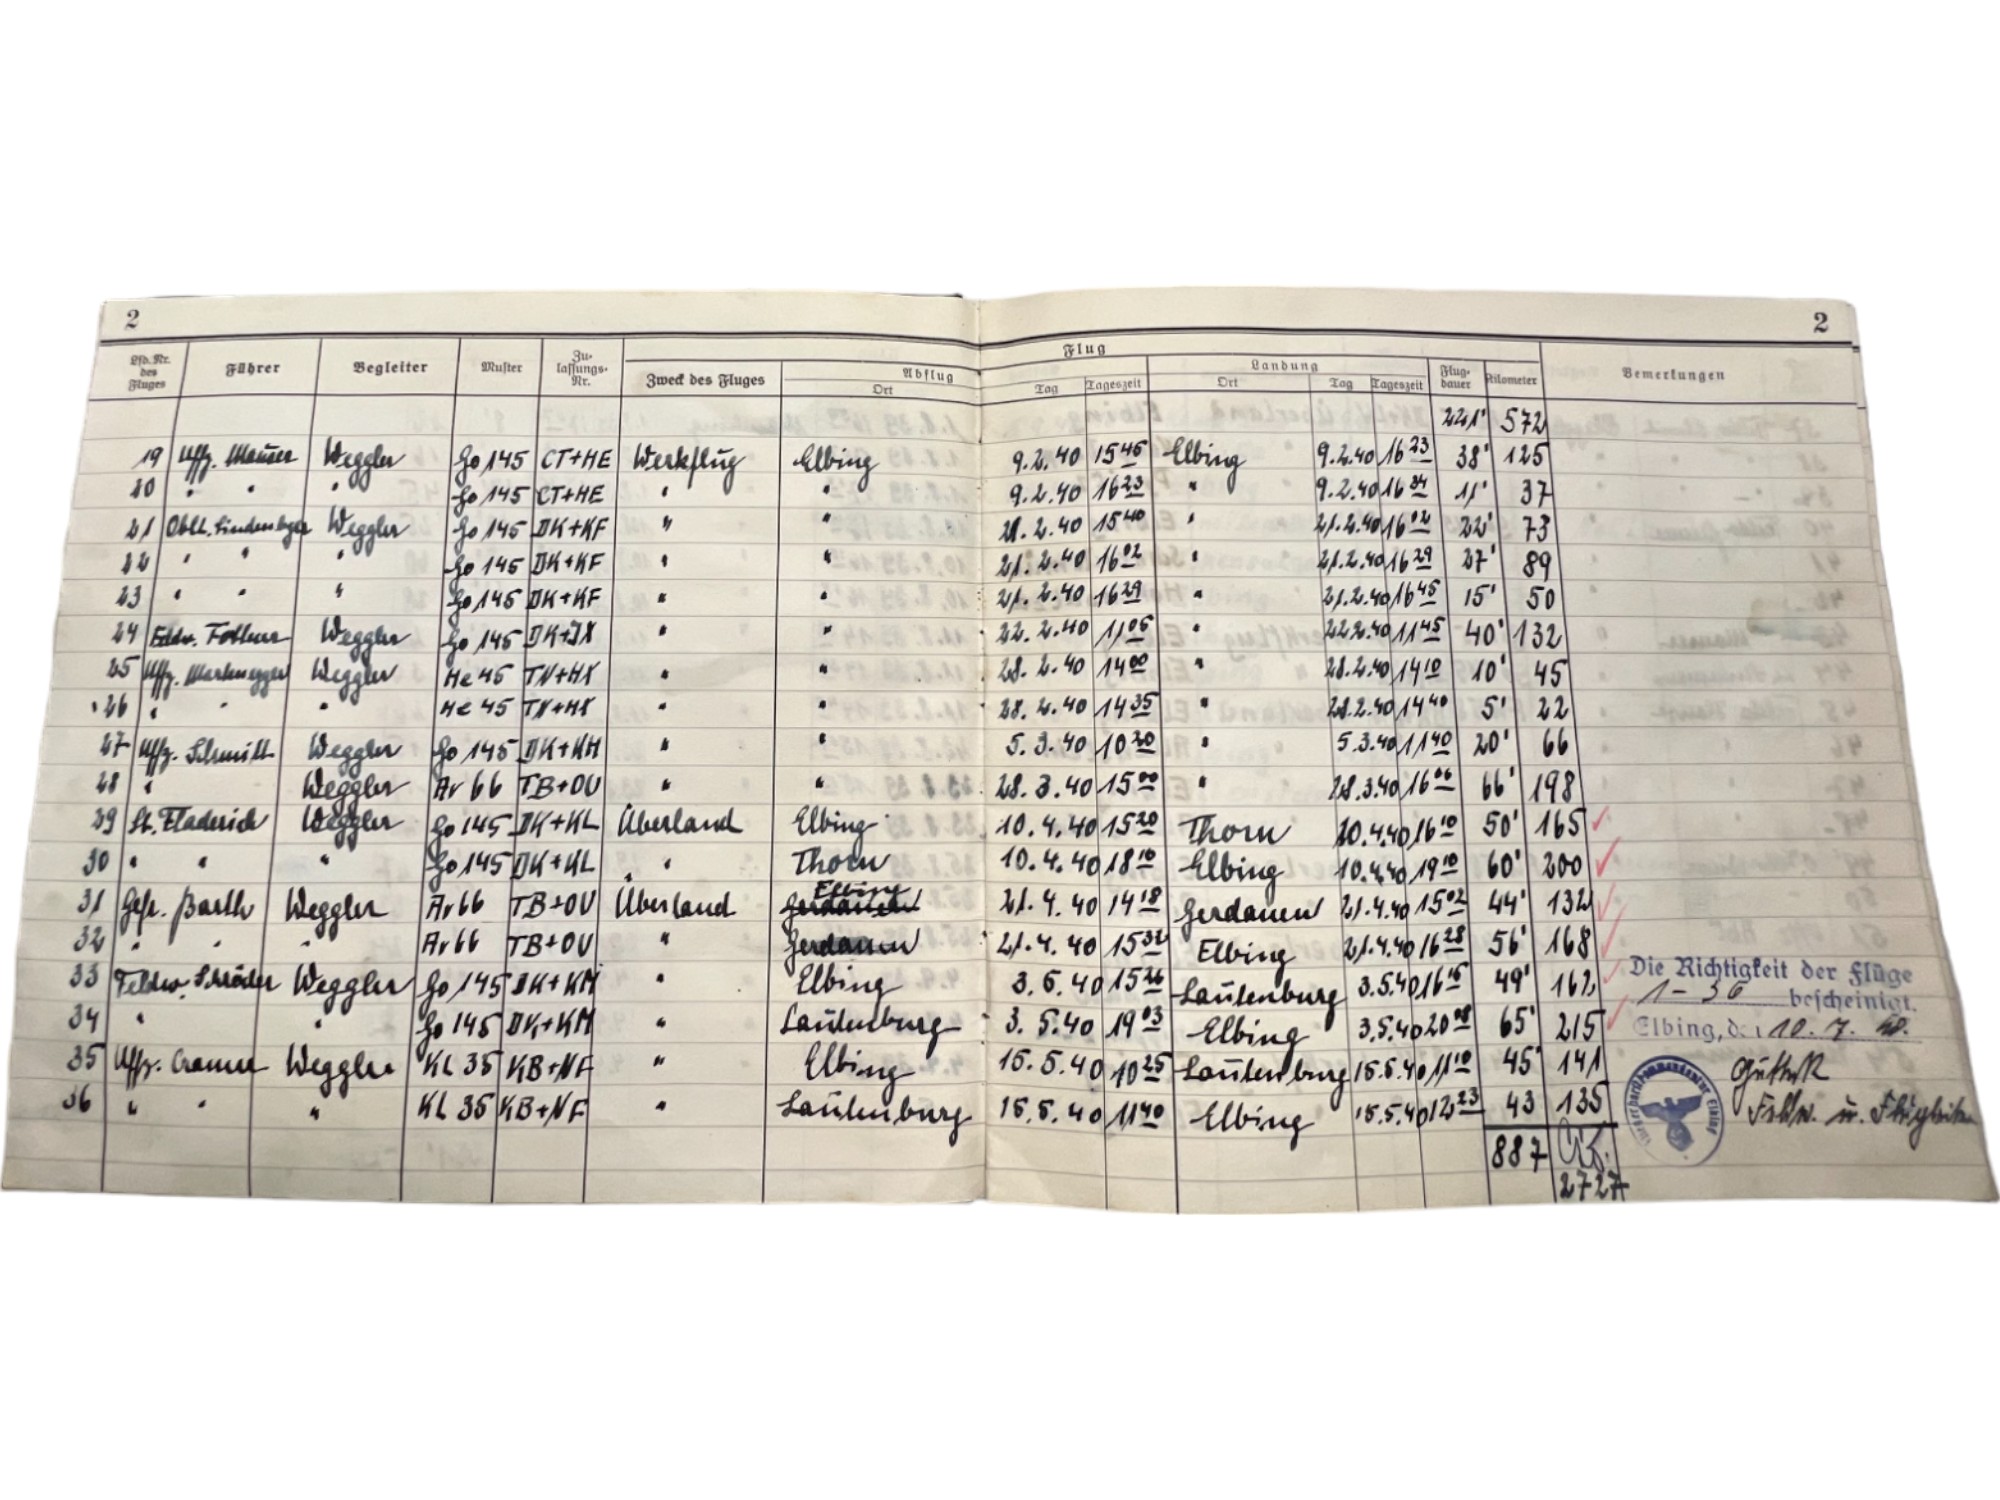 2 2
Lfd. Nr. des Fluges Führer Begleiter Muster Zulassungs-Nr. Zweck des Fluges Abflug Ort Flug Tag Tageszeit Landung Ort Tag Tageszeit Flugdauer Kilometer Bemerkungen
221' 572
19 Uffz. Mauser Weggler Go 145 CT+HE Werkflug Elbing 9.2.40 15 45 Elbing 9.2.40 16 23 38' 125
20 " " " Go 145 CT+HE " " 9.2.40 16 23 " 9.2.40 16 34 11' 37
21 Oblt. Weggler Go 145 DK+KF " " 21.2.40 15 40 " 21.2.40 16 02 22' 73
22 " " " Go 145 DK+KF " 21.2.40 16 02 " 21.2.40 16 29 27' 89
23 " " " Go 145 DK+KF " " 21.2.40 16 29 " 21.2.40 16 45 15' 50
24 Feldw. Weggler Go 145 DK+JX " " 22.2.40 11 05 " 22.2.40 11 45 40' 132
25 Uffz. Weggler He 45 TN+HX " " 28.2.40 14 00 " 28.2.40 14 10 10' 45
26 " " He 45 TN+HX " " 28.2.40 14 35 " 28.2.40 14 40 5' 22
27 Uffz. Schmitt Weggler Go 145 DK+KM " " 5.3.40 10 20 " 5.3.40 11 40 20' 66
28 " Weggler Ar 66 TB+OU " " 28.3.40 15 00 " 28.3.40 16 06 66' 198
29 Lt. Fladerich Weggler Go 145 DK+KL Überland Elbing 10.4.40 15 20 Thorn 10.4.40 16 10 50' 165
30 " " " Go 145 DK+KL " Thorn 10.4.40 18 10 Elbing 10.4.40 19 10 60' 200
31 Gefr. Barth Weggler Ar 66 TB+OU Überland Gerdauen Elbing 21.4.40 14 18 Gerdauen 21.4.40 15 02 44' 132
32 " " " Ar 66 TB+OU " Gerdauen 21.4.40 15 32 Elbing 21.4.40 16 28 56' 168
33 Feldw. Schröder Weggler Go 145 DK+KM " Elbing 3.5.40 15 26 Lautenburg 3.5.40 16 15 49' 162
34 " " Go 145 DK+KM " Lautenburg 3.5.40 19 03 Elbing 3.5.40 20 08 65' 215
35 Uffz. Cramer Weggler KL 35 KB+NF " Elbing 15.5.40 10 25 Lautenburg 15.5.40 11 10 45' 141
36 " " " KL 35 KB+NF " Lautenburg 15.5.40 11 40 Elbing 15.5.40 12 23 43 135
887
2727
Die Richtigkeit der Flüge
1-36 bescheinigt.
Elbing, d. 10.7.40.
Feldw. u.